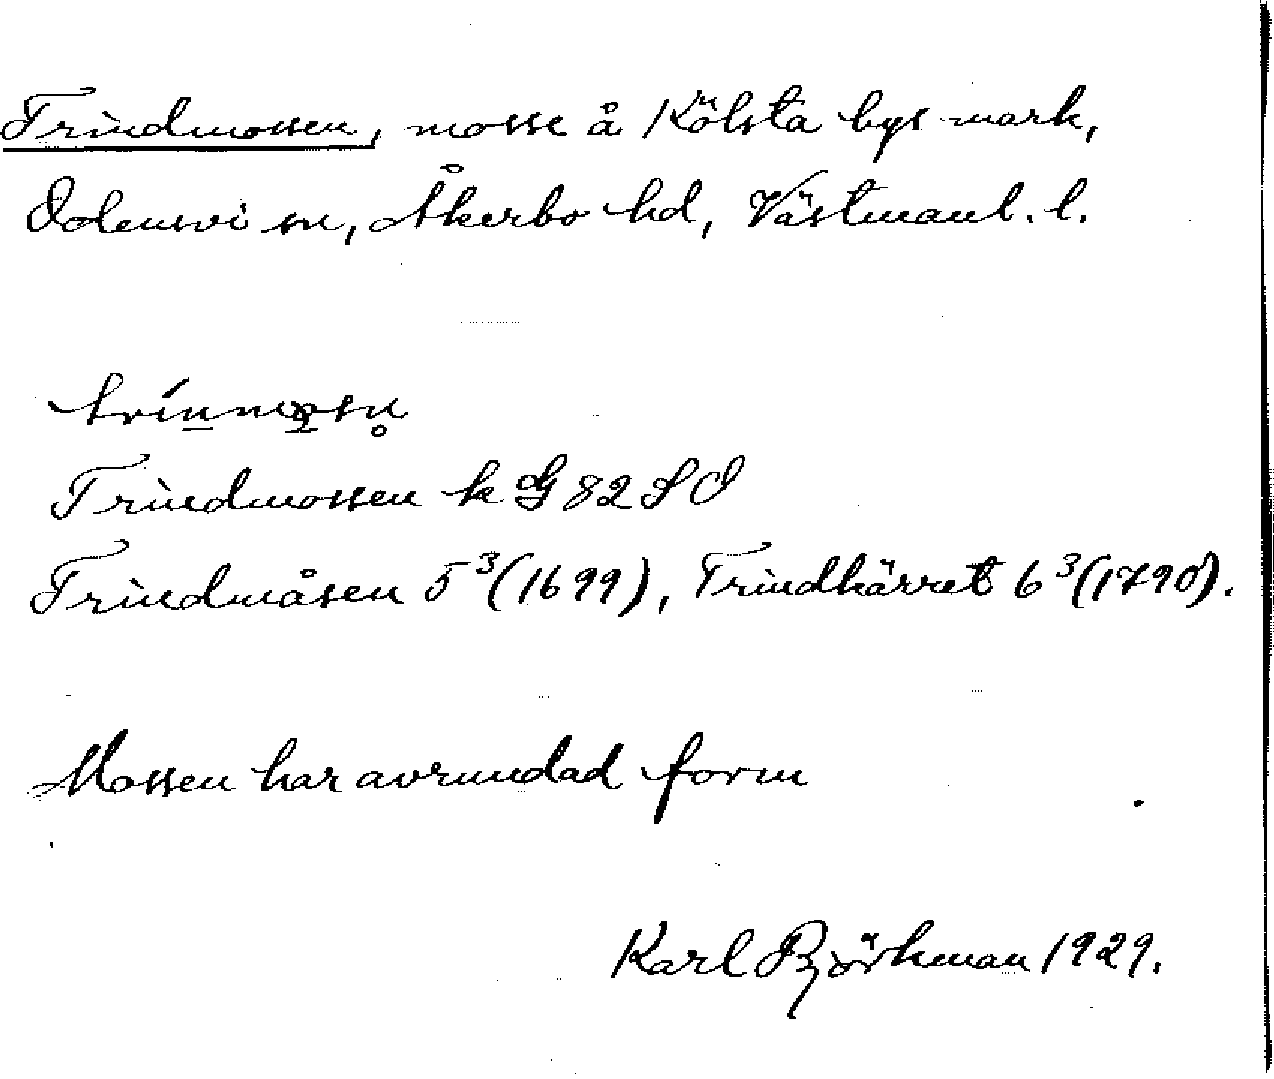 Trindmossen, mosse å Kölsta bys mark,
Odensvi sn, Åkerbo hd, Västmanl. l.
Trindmossen k G 82 S O
Trindmåsen 5³ (1699), Trindkärret 6³ (1790).
Mossen har avrundad form
Karl Björkman 1929.